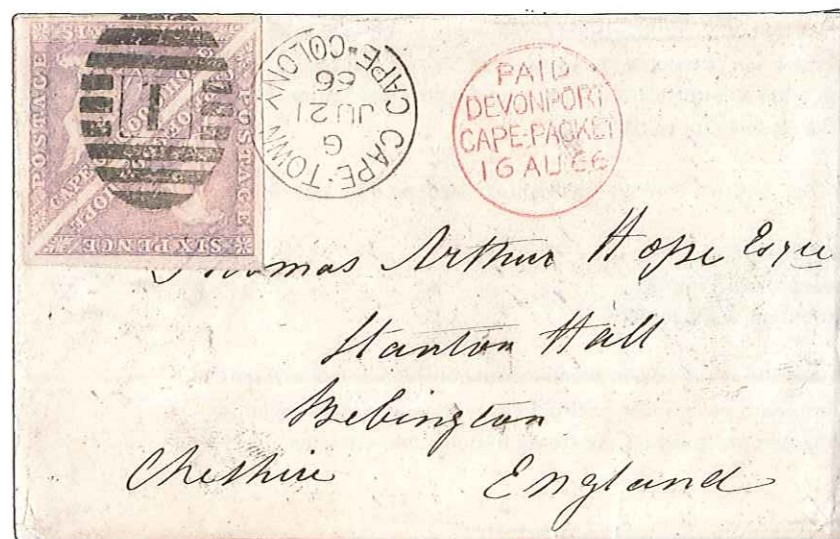 SIX PENCE
POSTAGE
CAPE OF GOOD HOPE
POSTAGE
SIX PENCE
1
CAPE·TOWN
CAPE·COLONY
G
JU 21
66
PAID
DEVONPORT
CAPE·PACKET
16 AU 66
Thomas Arthur Hope Esqre
Stanton Hall
Bebington
Cheshire England